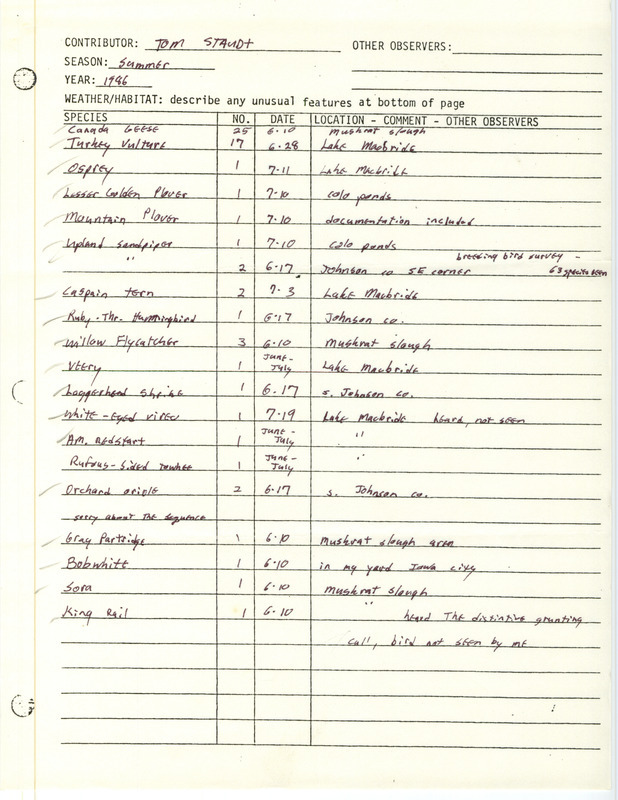 CONTRIBUTOR: TOM STAUDT OTHER OBSERVERS:
SEASON: Summer
YEAR: 1986
WEATHER/HABITAT: describe any unusual features at bottom of page
SPECIES NO. DATE LOCATION - COMMENT - OTHER OBSERVERS
Canada GEESE 25 6-10 muskrat slough
Turkey Vulture 17 6-28 Lake Macbride
Osprey 1 7-11 Lake Macbride
Lesser Golden Plover 1 7-10 Colo ponds
Mountain Plover 1 7-10 documentation included
Upland sandpiper 1 7-10 Colo ponds
breeding bird survey -
" 2 6-17 Johnson co SE corner 63 species seen
Caspain tern 2 7-3 Lake Macbride
Ruby-Thr. Hummingbird 1 6-17 Johnson co.
Willow Flycatcher 3 6-10 Muskrat slough
Veery 1 June-July Lake Macbride
Loggerhead Shrike 1 6-17 s. Johnson co.
White-eyed vireo 1 7-19 Lake Macbride heard, not seen
Am. Redstart 1 June-July "
Rufous-sided towhee 1 June-July "
Orchard oriole 2 6-17 s. Johnson co.
sorry about the sequence
Gray Partridge 1 6-10 Muskrat slough area
Bobwhite 1 6-10 in my yard Iowa city
Sora 1 6-10 muskrat slough
King Rail 1 6-10 " heard The distintive grunting
call, bird not seen by me